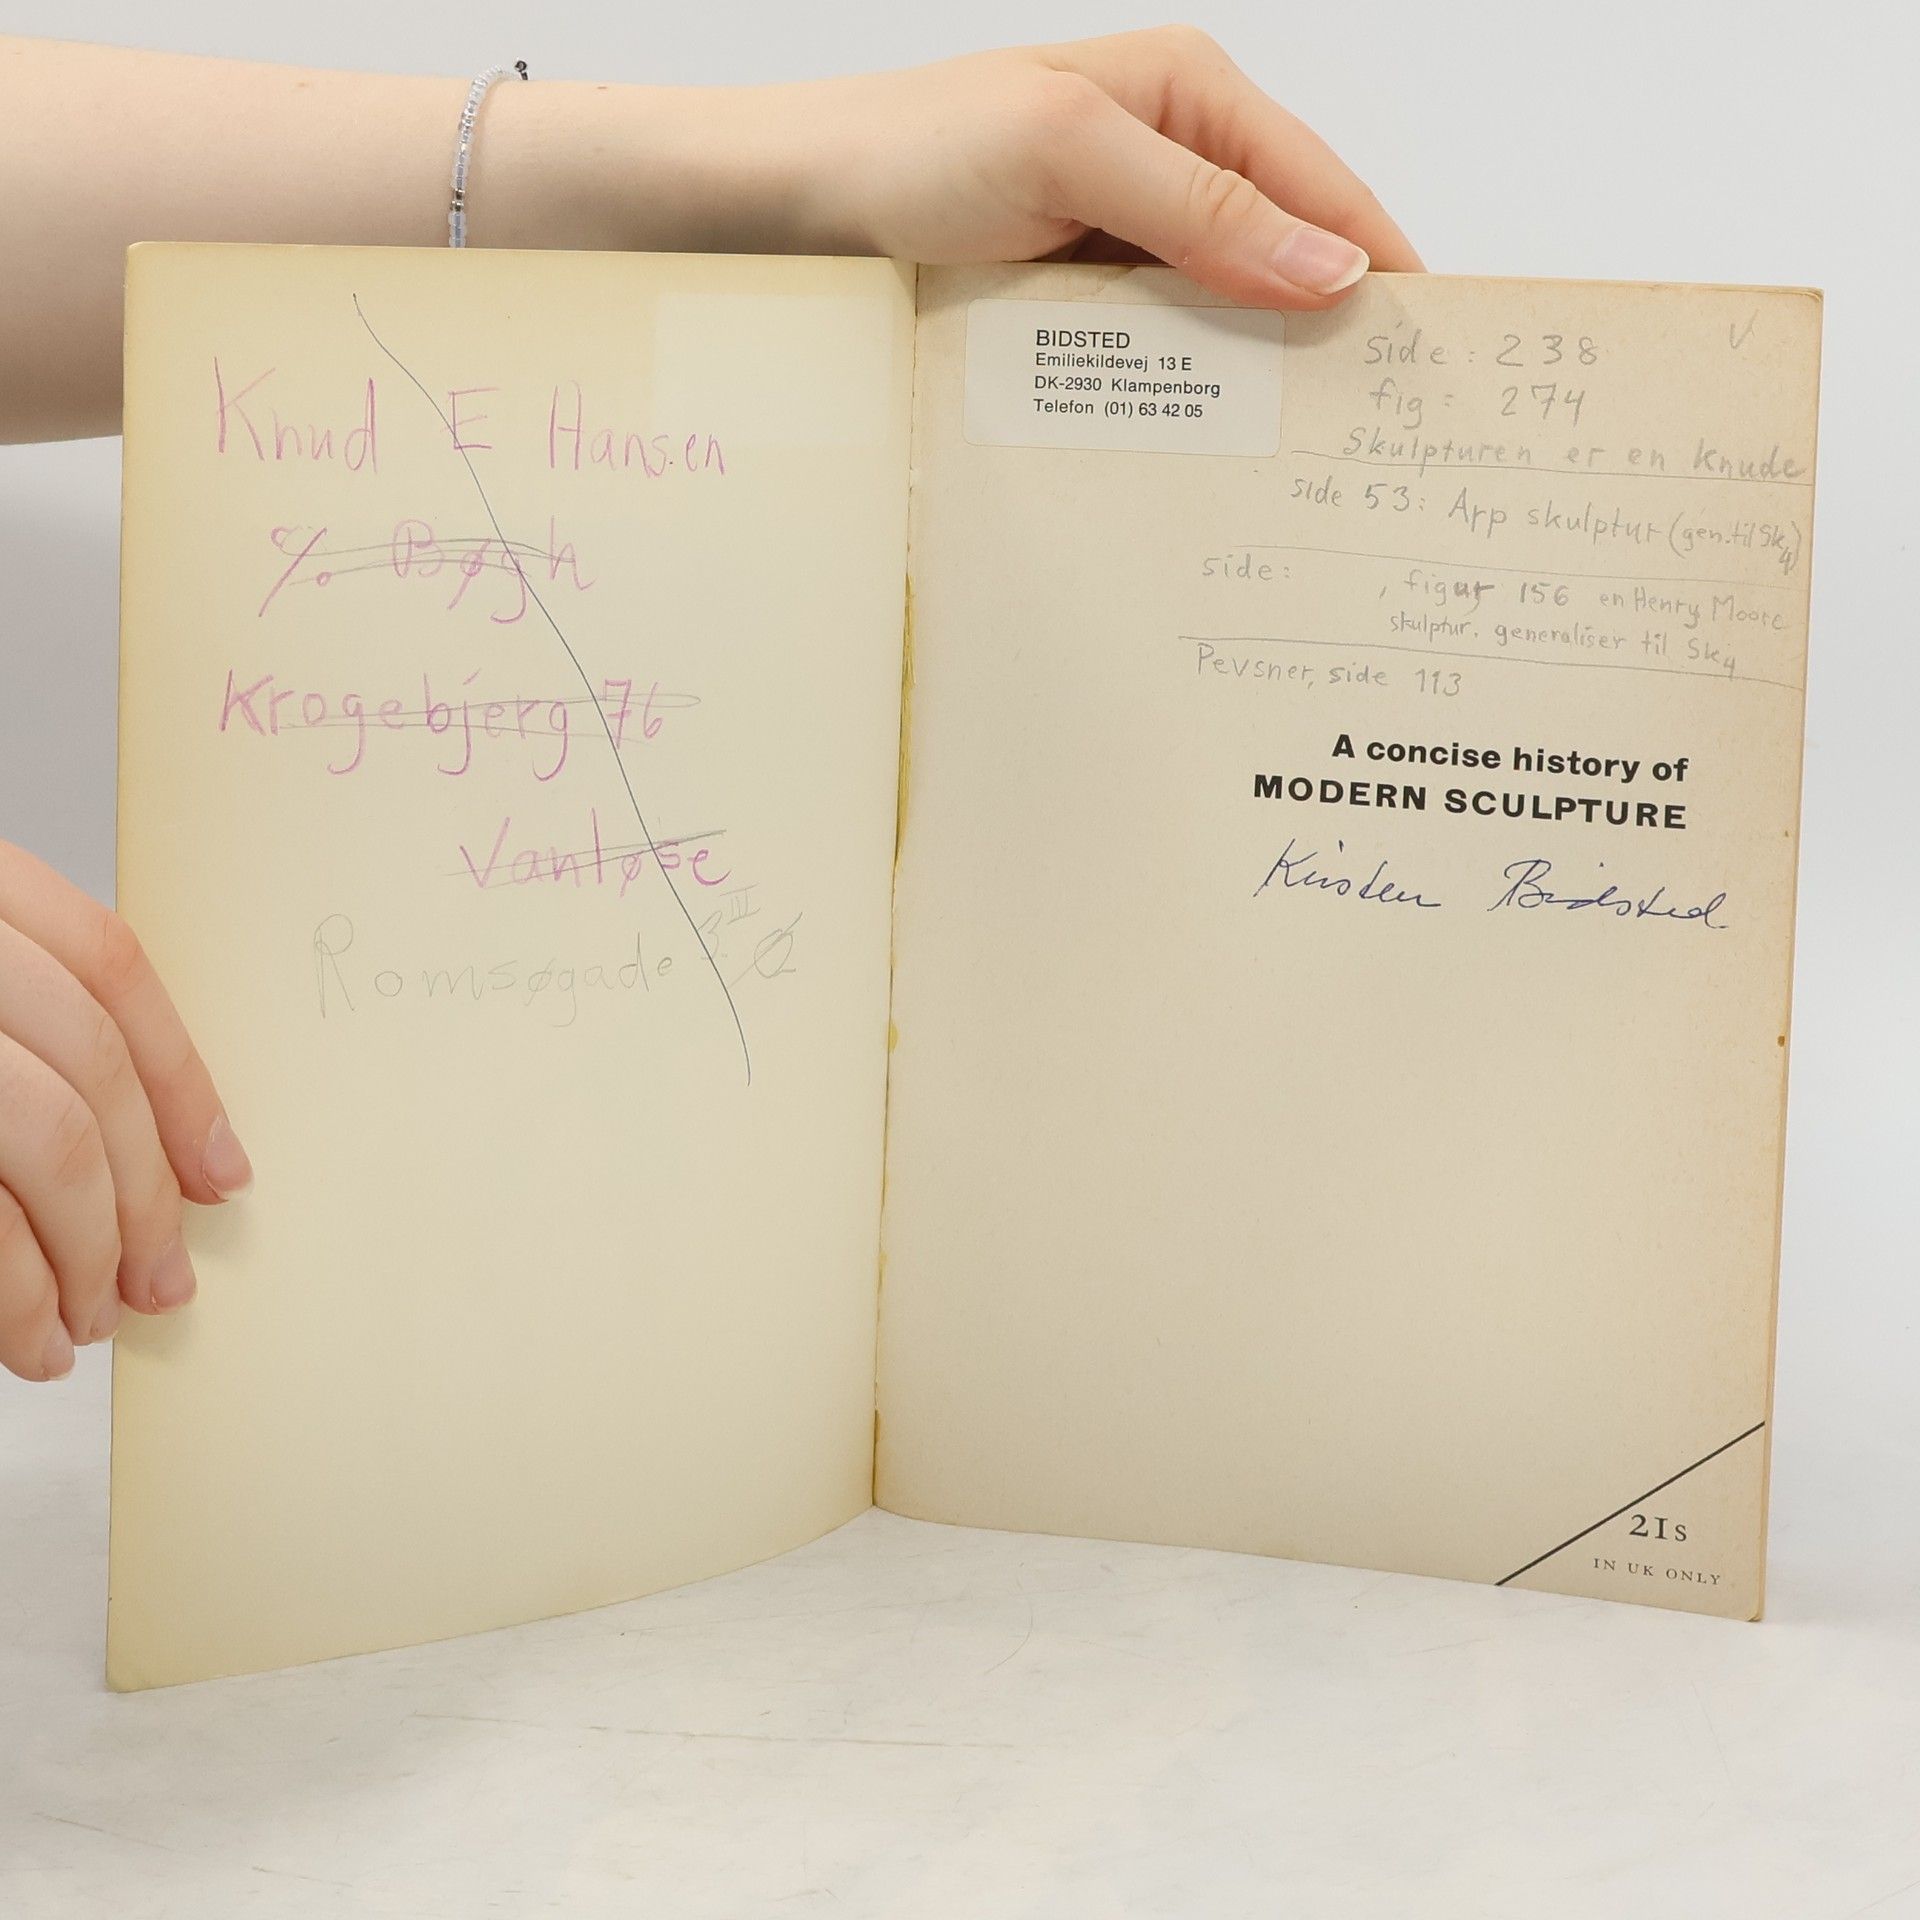 Knud E Hansen
% Bøgh
Krogebjerg 76
Vanløse
Romsøgade 3 III Ø
BIDSTED
Emiliekildevej 13 E
DK-2930 Klampenborg
Telefon (01) 63 42 05
side: 238
fig: 274
Skulpturen er en knude
side 53: Arp skulptur (gen. til Sk4)
side: , figur 156 en Henry Moore
skulptur. generaliser til Sk4
Pevsner, side 113
A concise history of
MODERN SCULPTURE
Kirsten Bidsted
21s
IN UK ONLY